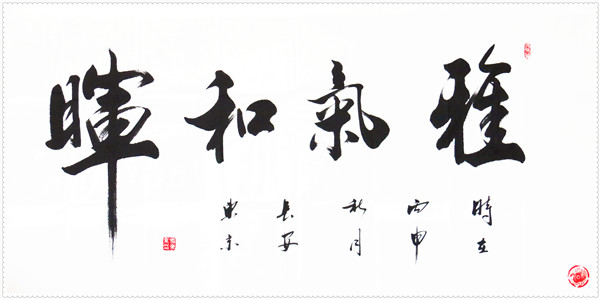 雅氣和暉
時在
丙申
秋月
長安